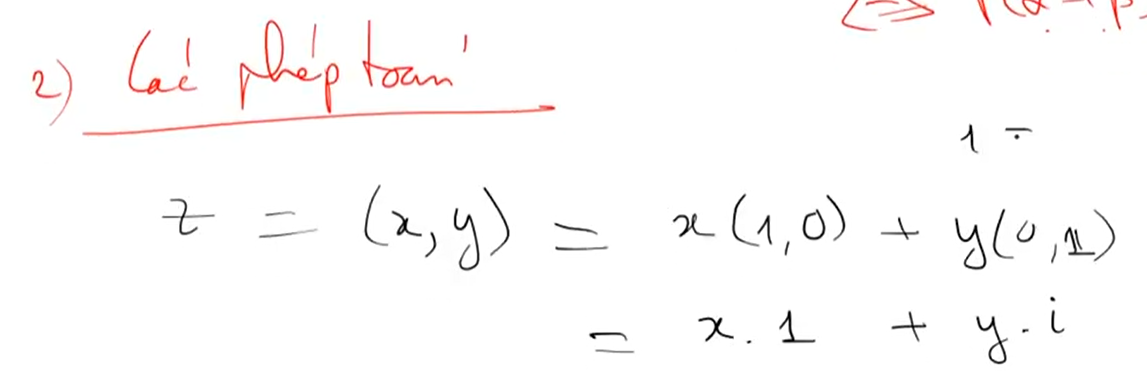 2) Các phép toán
z = (x, y) = x(1,0) + y(0,1)
= x. 1 + y. i